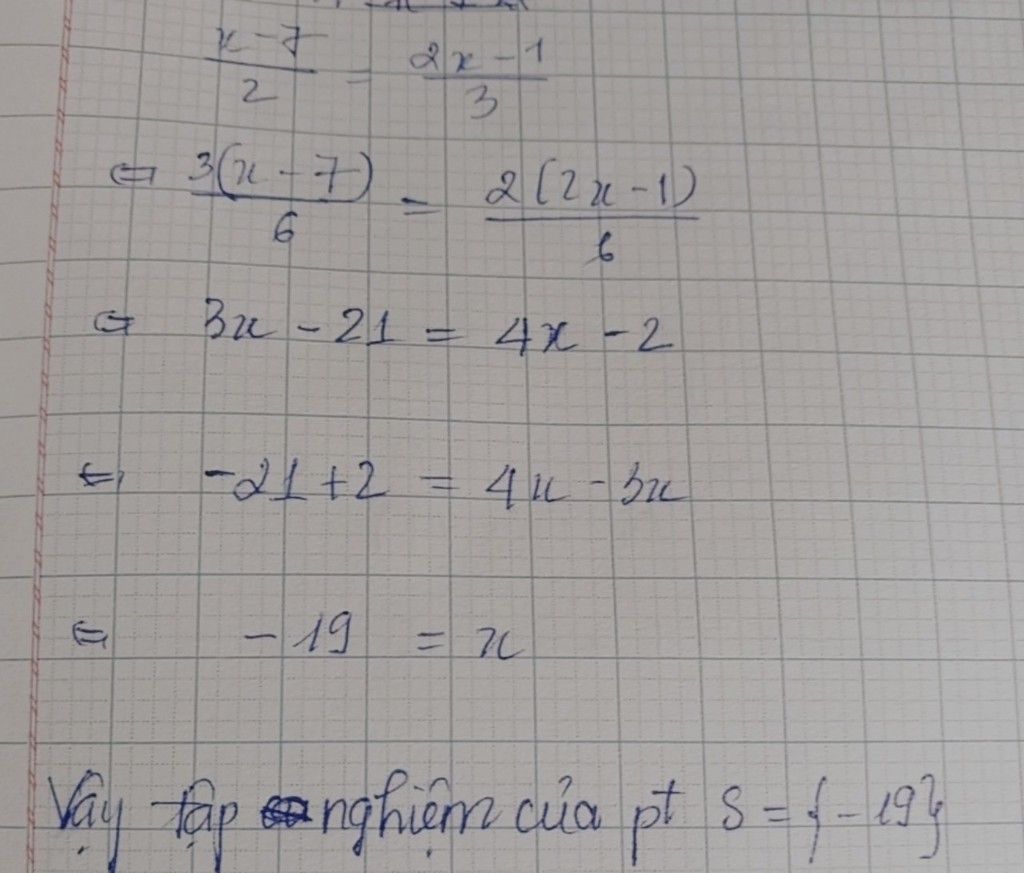 x-7/2 = 2x-1/3
⇔ 3(x-7)/6 = 2(2x-1)/6
⇔ 3x - 21 = 4x - 2
⇔ -21+2 = 4x - 3x
⇔ -19 = x
Vậy tập nghiệm của pt S = {-19}